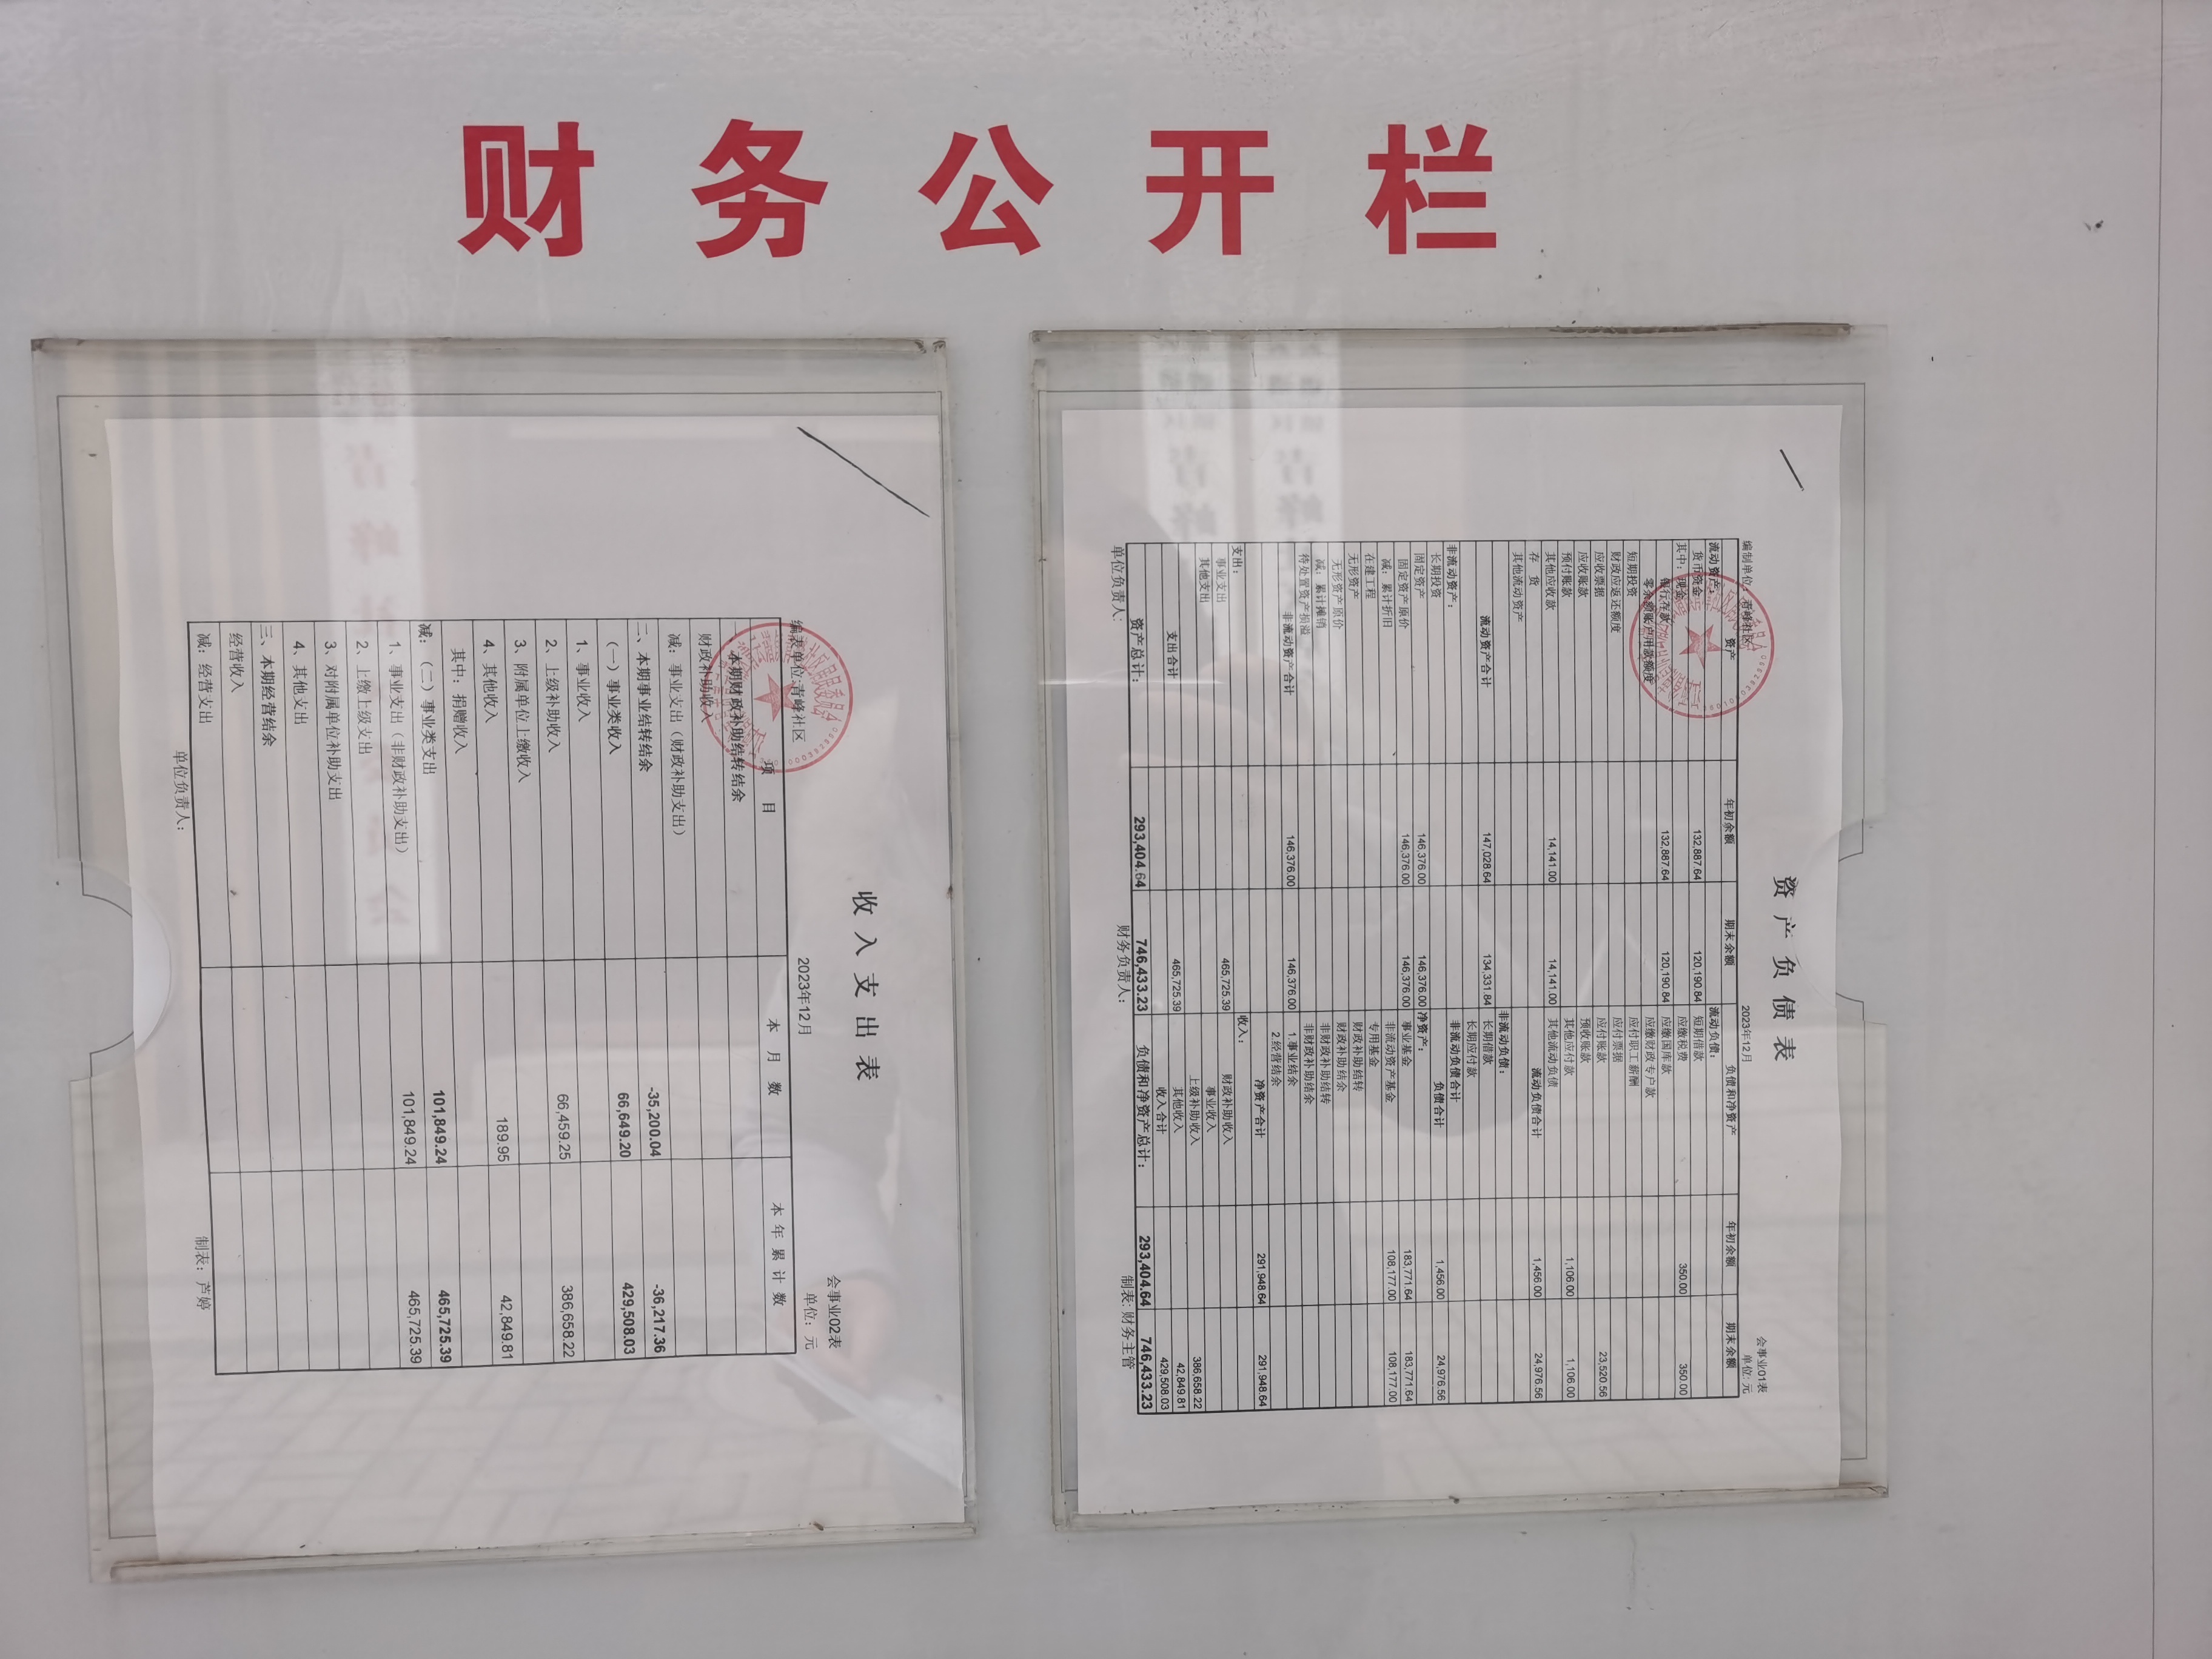 财务公开栏
收入支出表
会事业02表
编表单位:青峰社区 2023年12月 单位：元
项 目 本 月 数 本 年 累 计 数
一、本期财政补助结转结余
财政补助收入
减：事业支出（财政补助支出）
二、本期事业结转结余 -35,200.04 -36,217.36
（一）事业类收入 66,649.20 429,508.03
1、事业收入
2、上级补助收入 66,459.25 386,658.22
3、附属单位上缴收入
4、其他收入 189.95 42,849.81
其中：捐赠收入
减：（二）事业类支出 101,849.24 465,725.39
1、事业支出（非财政补助支出） 101,849.24 465,725.39
2、上缴上级支出
3、对附属单位补助支出
4、其他支出
三、本期经营结余
经营收入
减：经营支出
单位负责人： 制表：芦婷
资产负债表
会事业01表
编制单位：青峰社区 2023年12月 单位:元
资产 年初余额 期末余额 负债和净资产 年初余额 期末余额
流动资产： 流动负债：
货币资金 132,887.64 120,190.84 短期借款
其中：现金 应缴税费 350.00 350.00
银行存款 132,887.64 120,190.84 应缴国库款
零余额账户用款额度 应缴财政专户款
短期投资 应付职工薪酬
财政应返还额度 应付票据
应收票据 应付账款 23,520.56
应收账款 预收账款
预付账款 其他应付款 1,106.00 1,106.00
其他应收款 14,141.00 14,141.00 其他流动负债
存 货 流动负债合计 1,456.00 24,976.56
其他流动资产
非流动负债：
流动资产合计 147,028.64 134,331.84 长期借款
长期应付款
非流动资产： 非流动负债合计
长期投资 负债合计 1,456.00 24,976.56
固定资产 146,376.00 146,376.00 净资产：
固定资产原价 146,376.00 146,376.00 事业基金 183,771.64 183,771.64
减：累计折旧 非流动资产基金 108,177.00 108,177.00
在建工程 专用基金
无形资产 财政补助结转
无形资产原价 财政补助结余
减：累计摊销 非财政补助结转
待处置资产损溢 非财政补助结余
非流动资产合计 146,376.00 146,376.00 1.事业结余
2.经营结余
净资产合计 291,948.64 291,948.64
支出： 收入：
事业支出 465,725.39 财政补助收入
其他支出 事业收入
上级补助收入 386,658.22
支出合计 465,725.39 其他收入 42,849.81
收入合计 429,508.03
资产总计： 293,404.64 746,433.23 负债和净资产总计： 293,404.64 746,433.23
单位负责人： 财务负责人： 制表: 财务主管